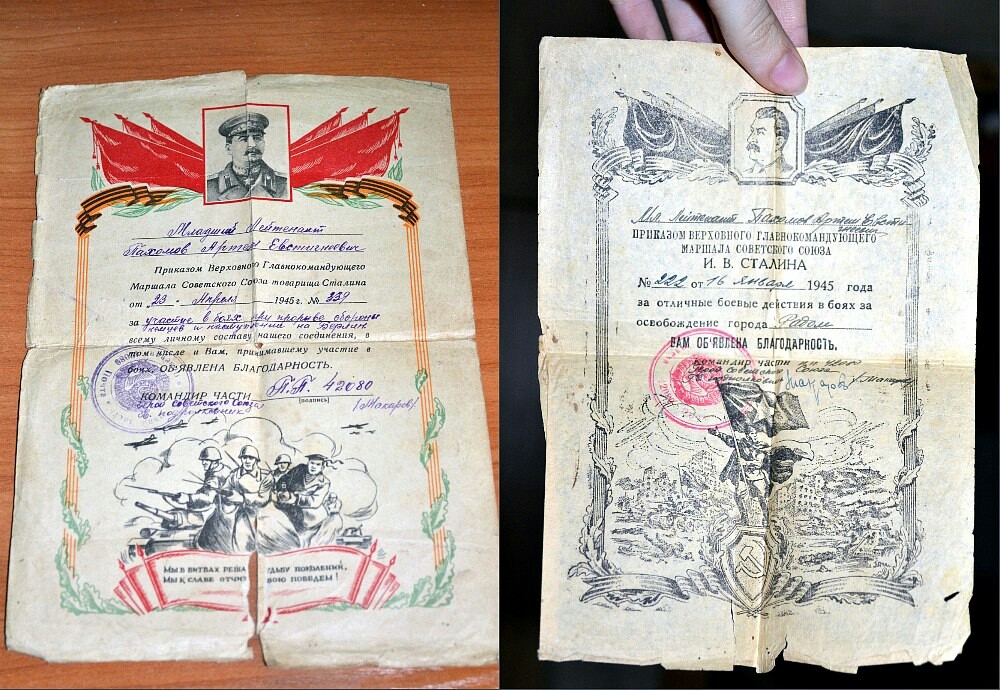 Младший Лейтенант
Пахомов Артем Евстигнеевич
Приказом Верховного Главнокомандующего
Маршала Советского Союза товарища Сталина
от „23 - Апреля 1945 г. № 339
за участие в боях при прорыве обороны
немцев и наступлении на Берлин
всему личному составу нашего соединения, в
том числе и Вам, принимавшему участие в
боях, ОБ'ЯВЛЕНА БЛАГОДАРНОСТЬ.
КОМАНДИР ЧАСТИ П.П. 42080
(подпись)
Герой Советского Союза
Гв. подполковник /Макаров/
МЫ В БИТВАХ РЕША УДЬБУ ПОКОЛЕНИЙ,
МЫ К СЛАВЕ ОТЧИЗ ВОЮ ПОВЕДЕМ!
Мл. Лейтенант Пахомов Артем Евсти
гнеевич
ПРИКАЗОМ ВЕРХОВНОГО ГЛАВНОКОМАНДУЮЩЕГО
МАРШАЛА СОВЕТСКОГО СОЮЗА
И. В. СТАЛИНА
№ 222 от 16 Января 1945 года
за отличные боевые действия в боях за
освобождение города Радом
ВАМ ОБ'ЯВЛЕНА БЛАГОДАРНОСТЬ.
Командир части
Герой Советского Союза
Макаров